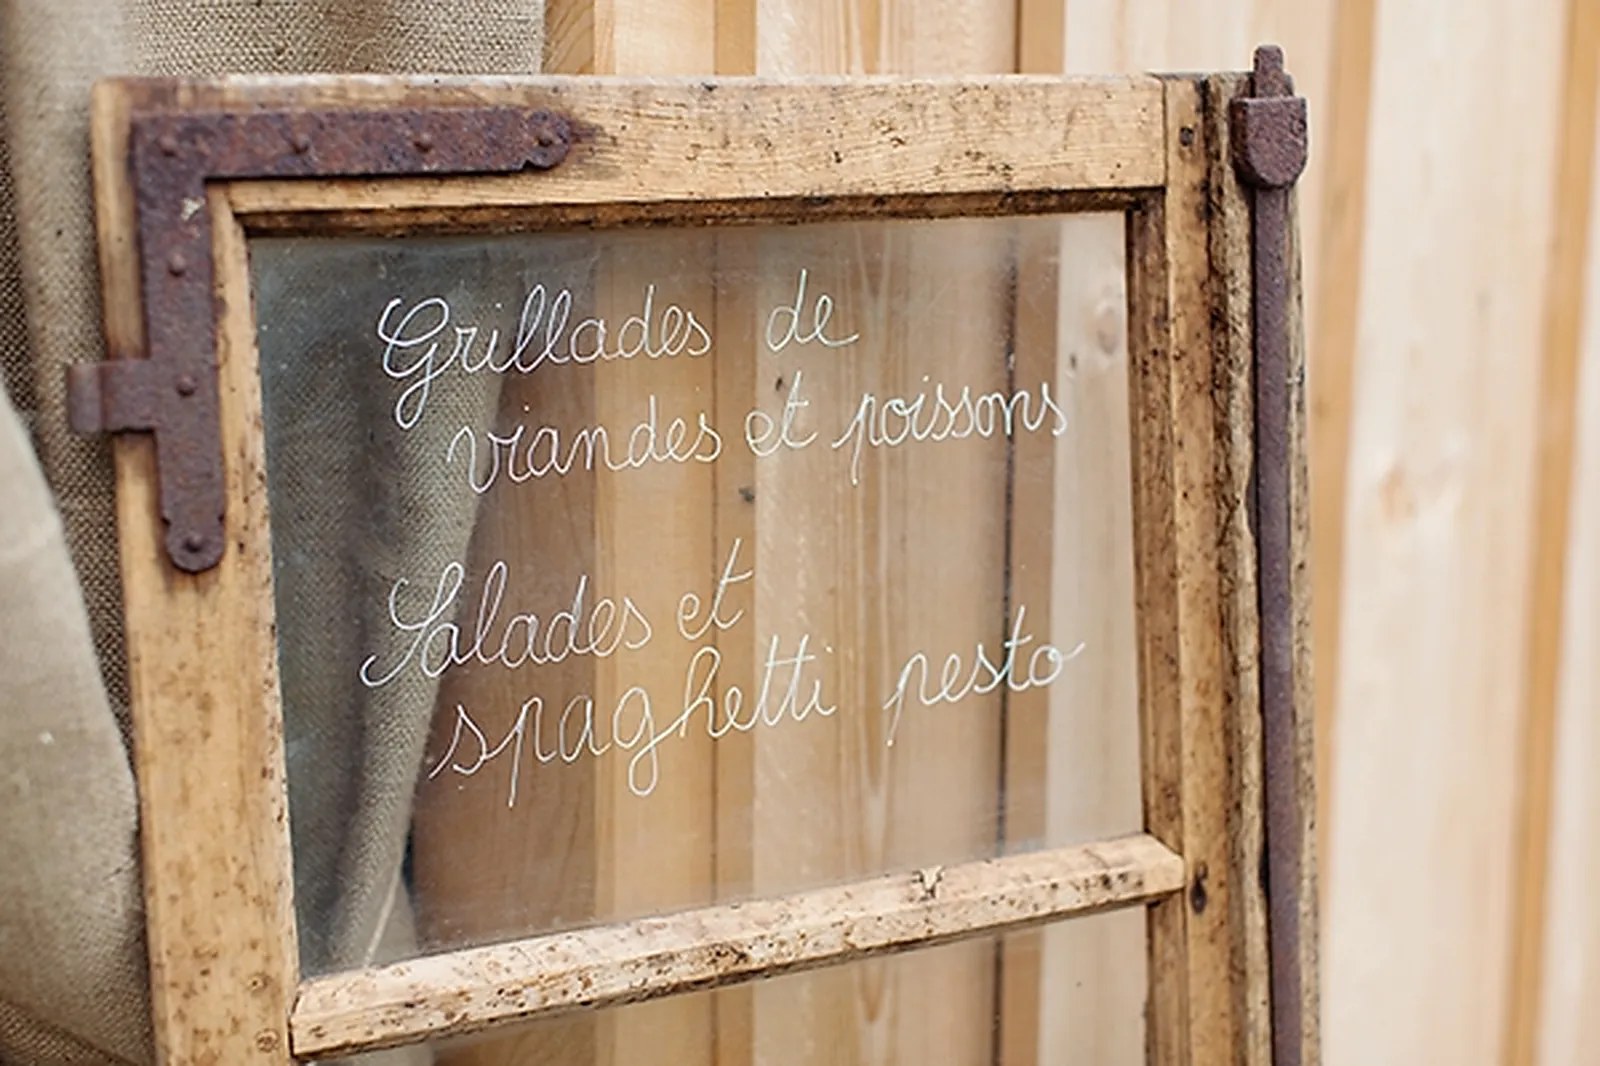 Grillades de
viandes et poissons
Salades et
spaghetti pesto